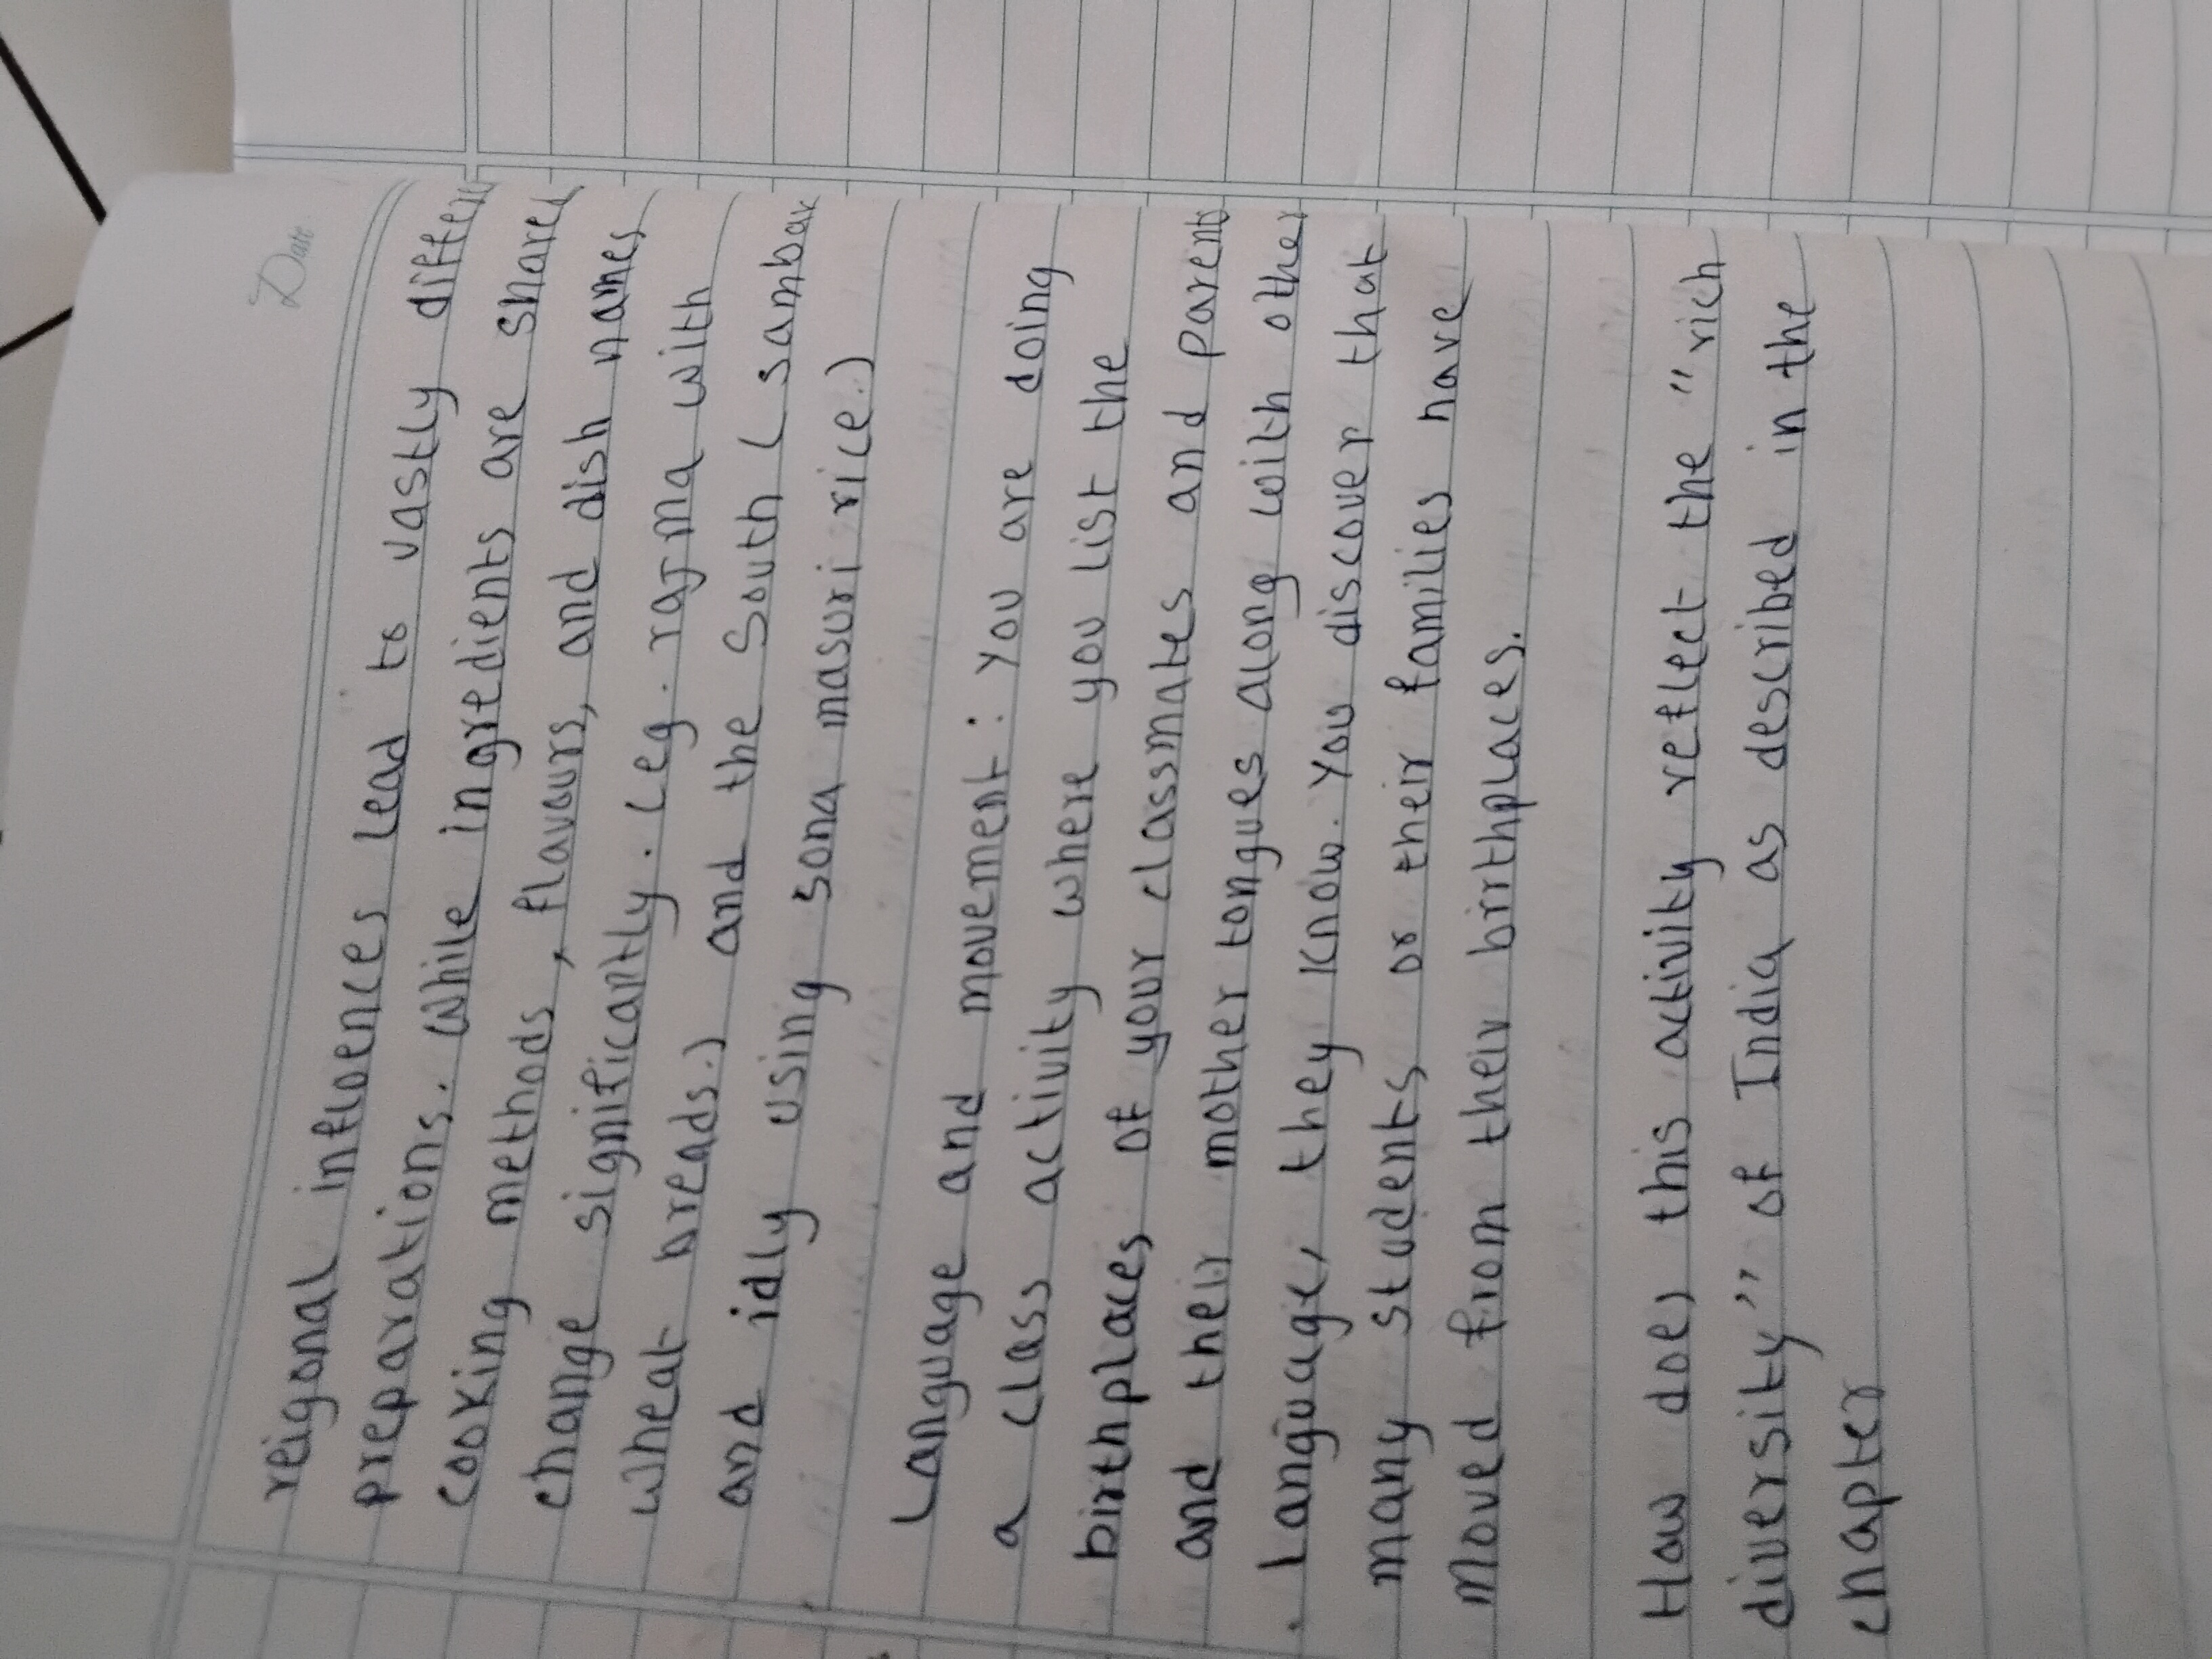 Date
reigonal influences lead to vastly differen
preparations. While ingredients are shared
cooking methods, flavours, and dish names
change significantly. (eg. rajma with
wheat breads.) and the South (sambar
and idly using sona masuri rice.)
Language and movement: You are doing
a class activity where you list the
birthplaces of your classmates and parents
and their mother tongues along with other
. languages, they know. You discover that
many students or their families have
moved from their birthplaces.
How does this activity reflect the "rich
diversity" of India as described in the
chapter